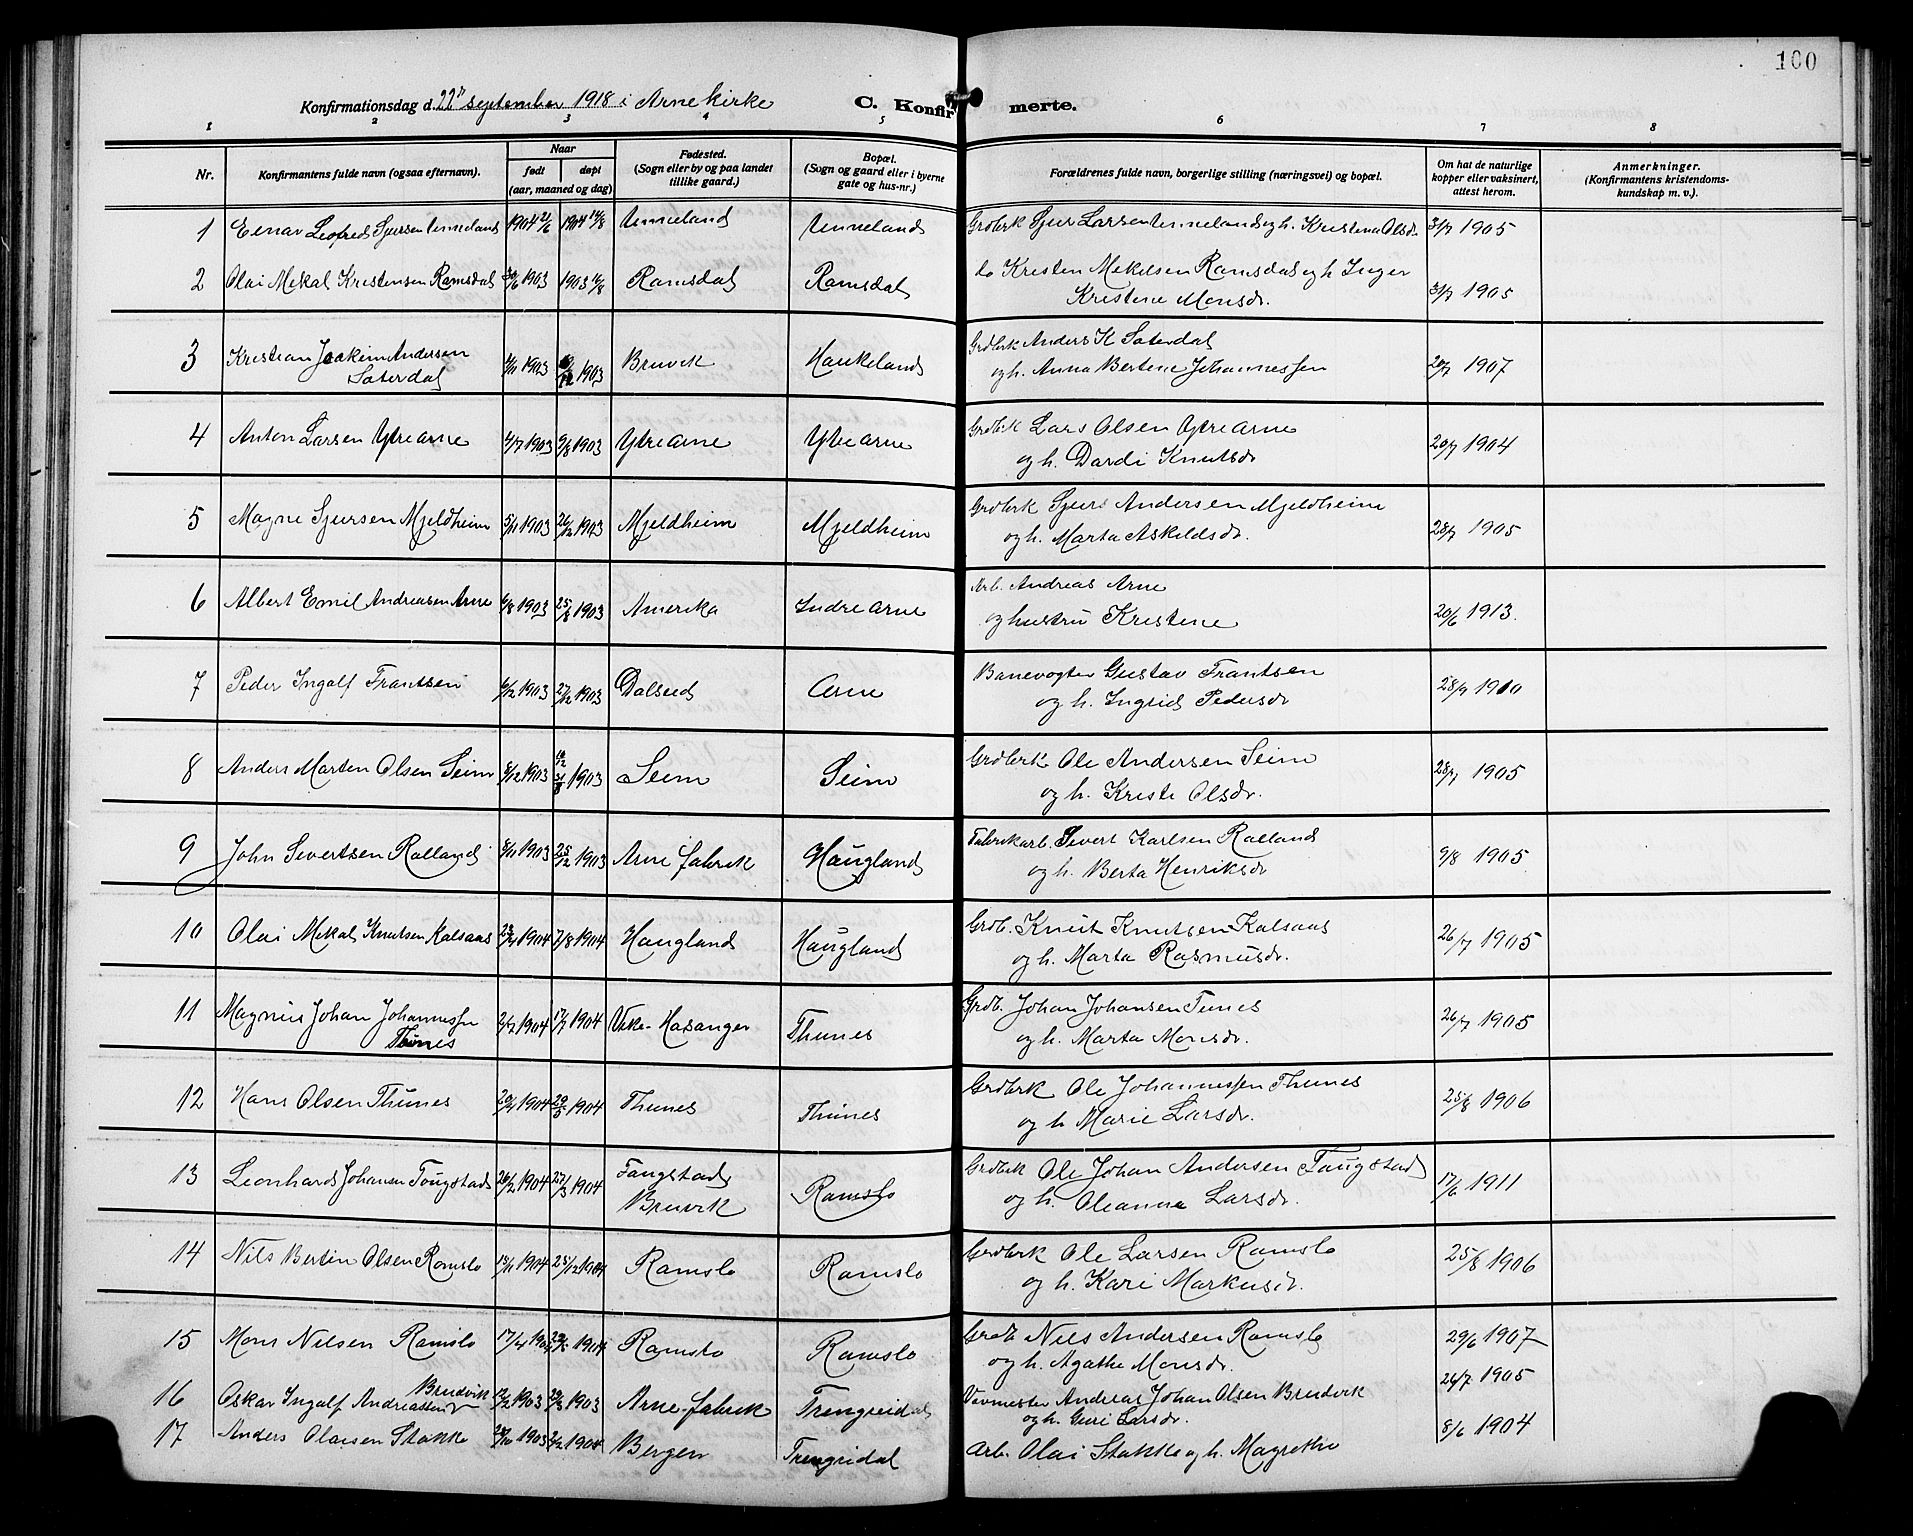 100
Konfirmationsdag d. 22de september 1918 i Arne kirke C. Konfirmerte.
1 2 3 4 5 6 7 8
Nr. Konfirmantens fulde navn (ogsaa efternavn). Naar født døpt (aar, maaned og dag) Fødested. (Sogn eller by og paa landet tillike gaard.) Bopæl. (Sogn og gaard eller i byerne gate og hus-nr.) Forældrenes fulde navn, borgerlige stilling (næringsvei) og bopæl. Om hat de naturlige kopper eller vaksinert, attest herom. Anmerkninger. (Konfirmantens kristendoms-kundskap m. v.)
1 Einar Leofred Sjursen Unneland 1904 2/6 1904 14/8 Unneland Unneland Grdbrk Sjur Larsen Unneland og h. Kristina Olsdr. 31/7 1905
2 Olai Mekal Kristensen Ramsdal 30/6 1903 1903 16/8 Ramsdal Ramsdal do Kristen Mekelsen Ramsdal og h Inger
Kristene Monsdr. 31/7 1905
3 Kristian Joakim Andersen
Saterdal 4/11 1903 1903 Bruvik Haukeland Grdbrk Anders K Saterdal
og h. Anna Bertine Johannessen 20/7 1907
4 Anton Larsen Ytre Arne 6/7 1903 9/8 1903 Ytre Arne Ytre Arne Grdbrk Lars Olsen Ytre Arne
og h. Dardi Knutsdr 20/7 1904
5 Magne Sjursen Mjeldheim 5/11 1903 26/12 1903 Mjeldheim Mjeldheim Grdbrk Sjurs Andersen Mjeldheim
og h. Marta Askeldsdr. 28/7 1905
6 Albert Emil Andreasen Arne 6/8 1903 25/8 1903 Amerika Indre Arne Arb. Andreas Arne
og hustru Kristene 20/6 1913.
7 Peder Ingolf Frantsen 6/12 1903 27/12 1903 Dalseid Arne Banevogter Gustav Frantsen
og h. Ingrid Pedersdr 28/7 1910
8 Anders Marten Olsen Seim 8/12 1903 1903 Seim Seim Grdbrk Ole Andersen Seim
og h. Kriste Olsdr. 28/7 1905
9 John Severtsen Rolland 8/11 1903 25/12 1903 Arne fabrik Haugland Fabrikarb. Severt Karlsen Rolland
og h. Berta Henriksdr 9/8 1905
10 Olai Mekal Knutsen Kalsaas 1904 7/8 1904 Haugland Haugland Grdb. Knut Knutsen Kalsaas
og h. Marta Rasmusdr. 26/7 1905
11 Magnus Johan Johannessen
Tunes 2/7 1904 17/7 1904 Thunes Grdb. Johan Johansen Tunes
og h. Marta Monsdr. 26/7 1905
12 Hans Olsen Thunes 20/4 1904 29/5 1904 Thunes Thunes Grdbrk Ole Johannessen Thunes
og h Marie Larsdr. 25/8 1906
13 Leonhard Johansen Tougstad 26/2 1904 27/3 1904 Faugstad
Bruvik Ramslo Grdbrk Ole Johan Andersen Faugstad
og h. Oleanna Larsdr. 17/6 1911
14 Nils Bertin Olsen Ramslo 15/11 1904 25/12 1904 Ramslo Ramslo Grdbrk Ole Larsen Ramslo
og h. Kari Markusdr. 25/8 1906
15 Mons Nilsen Ramslo 17/4 1904 Ramslo Ramslo Grdb Nils Andersen Ramslo
og h. Agathe Monsdr. 29/6 1907
16 Oskar Ingolf Andreassen Brudvik 12/2 1903 29/3 1903 Arne fabrik Trengreidal Vevmester Andreas Johan Olsen Brudvik
og h. Guri Larsdr. 26/7 1905
17 Anders Olaisen Stokke 1903 1904 Bergen Trengreidal Arb. Olai Stokke og h. Magrethe 8/6 1904